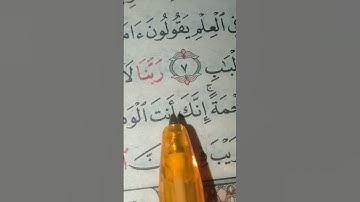 ٱلْعِلْمِ يَقُولُونَ ءَامَ
لْبَٰبِ ٧ رَبَّنَا لَا
حْمَةً ۚ إِنَّكَ أَنتَ ٱلْوَ
رَيْبَ